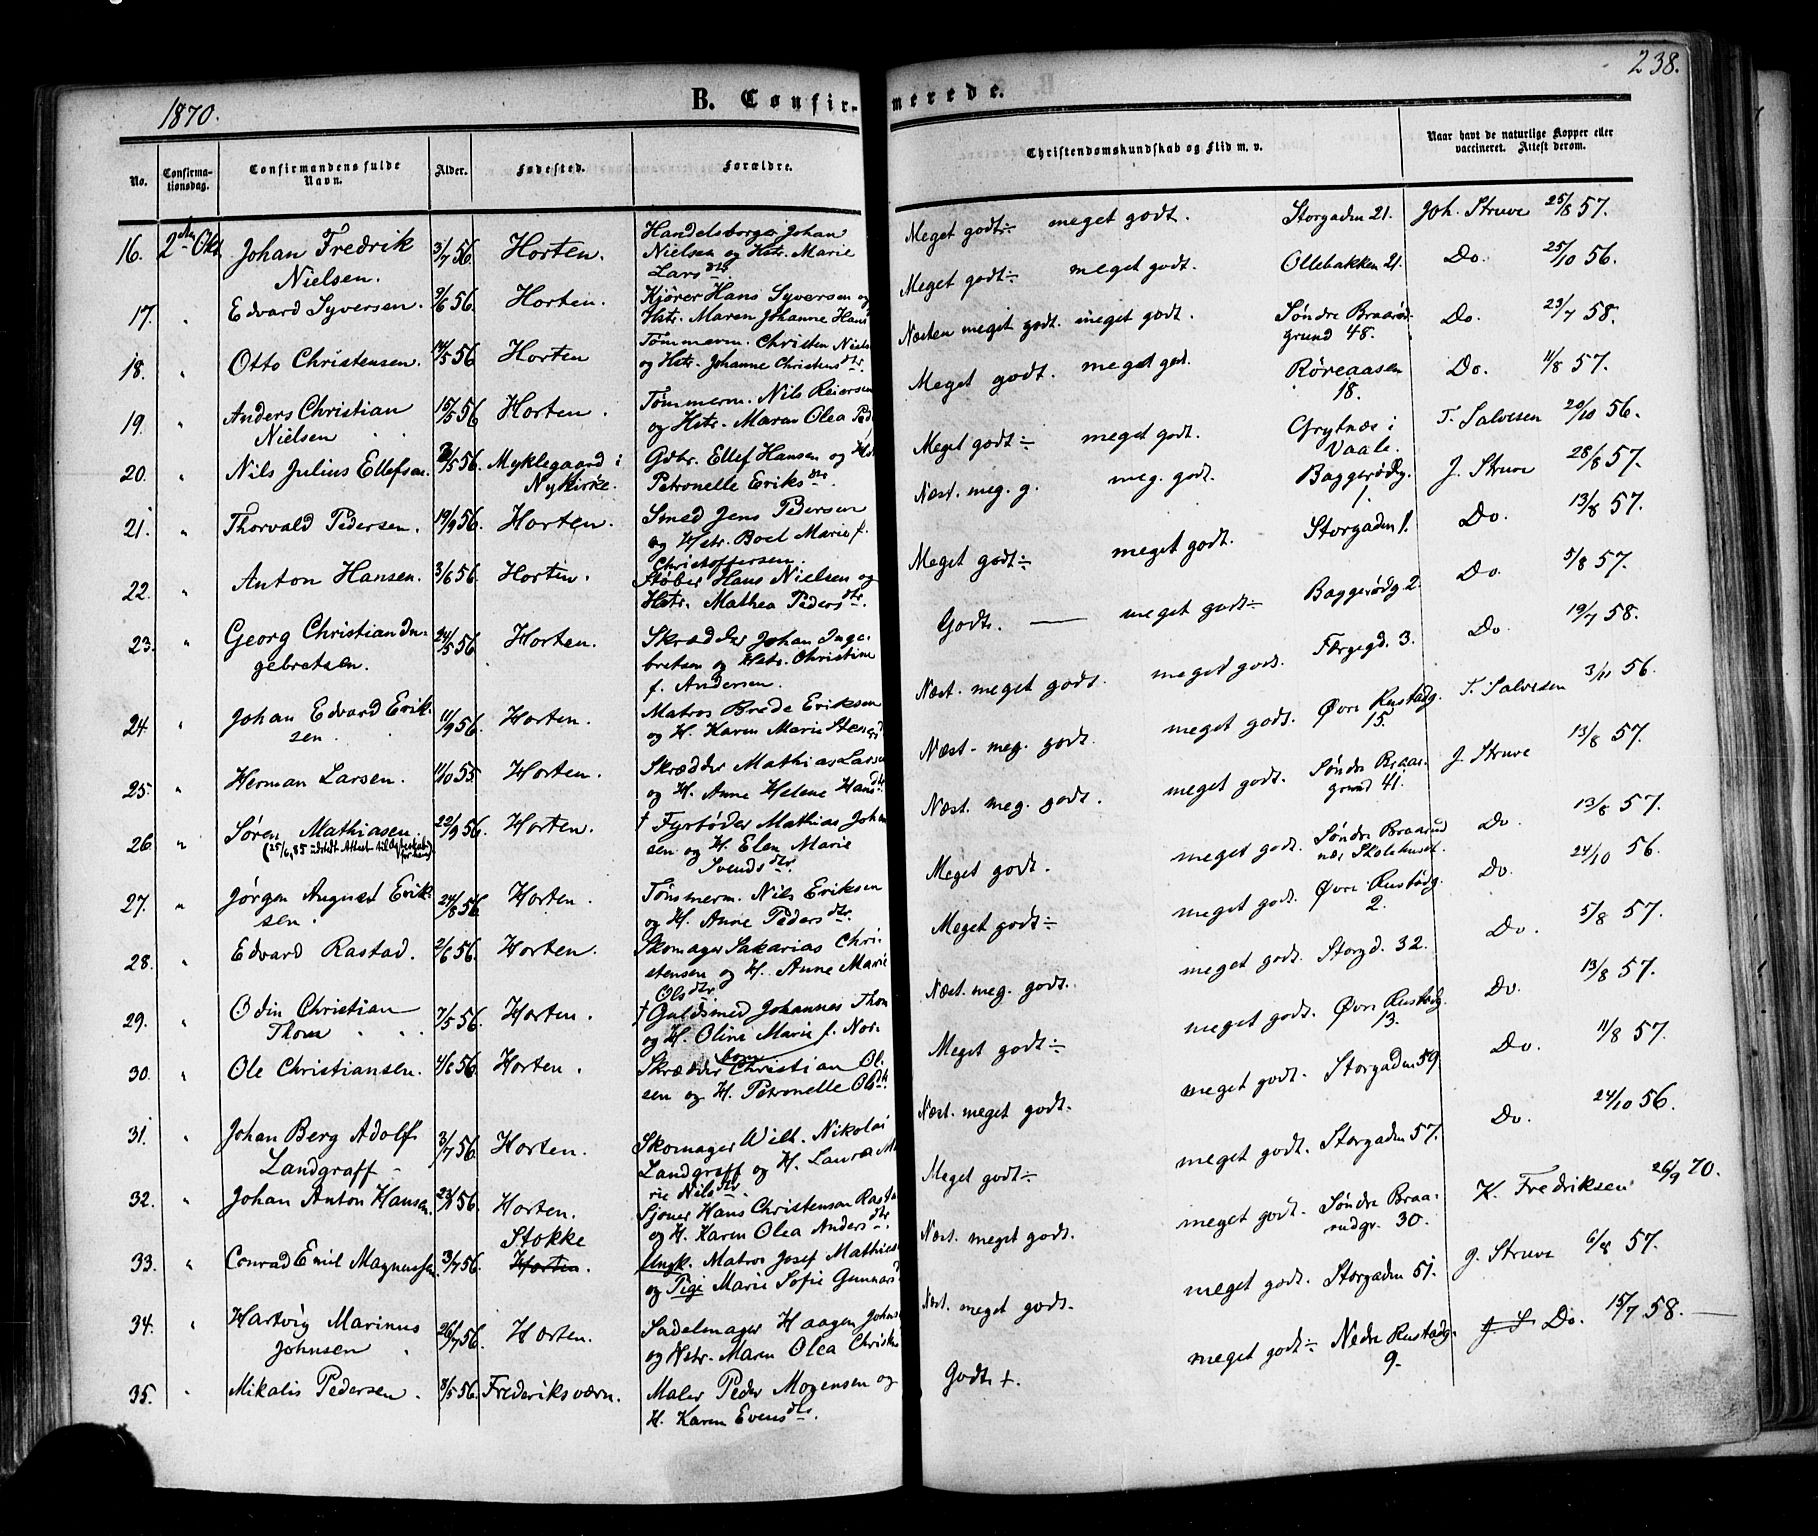 238.
1870.
B. Confirmerede.
No.
Confirmationsdag.
Confirmandens fulde Navn.
Alder.
Fødested.
Forældre.
Christendomskundskab og Flid m. v.
Naar havt de naturlige Kopper eller vaccineret. Attest derom.
16. 2den Okt. Johan Fredrik 3/7 56. Horten. Handelsborger Johan Meget godt÷ meget godt. Storgaden 21. Joh. Struve 25/8 57.
Nielsen. Nielsen og Hstr. Marie
Larsdtr.
17. " Edvard Syversen. 2/6 56 Horten. Kjører Hans Syversen og Meget godt÷ meget godt. Ollebakken 21. Do. 25/10 56.
Hstr. Maren Johanne Hans
18. " Otto Christensen. 14/5 56 Horten Tømmerm. Christen Niels Næsten meget godt. meget godt. Søndre Braarød- Do. 23/7 58.
og Hstr. Johanne Christensdtr. grund 48.
19. " Anders Christian 15/5 56 Horten. Tømmerm. Nils Reiersen Meget godt. meget godt. Røreaasen Do. 11/8 57.
Nielsen og Hstr. Maren Olea Ped 18.
20. " Nils Julius Ellefsen. /5 56. Myklegaard i Gdbr. Ellef Hansen og H Meget godt÷ meget godt. Grytnæs i T. Salvesen 20/10 56.
Nykirke. Petronelle Eriksdtr. Vaale.
21. " Thorvald Pedersen. 19/9 56. Horten. Smed Jens Pedersen Næst. meg. g. meg. godt. Baggerødg. J. Struve 28/8 57.
og Hstr. Boel Marie f. 1.
Christoffersen.
22. " Anton Hansen. 3/6 56. Horten. Støber Hans Nielsen og Meget godt÷ meget godt. Storgaden 1. Do. 13/8 57.
Hstr. Mathea Pedersdtr.
23. " Georg Christian In- 24/5 56 Horten. Skrædder Johan Inge- Godt. — meget godt÷ Baggerødg. 2. Do. 5/8 57.
gebretsen. bretsen og Hstr. Christine
f. Andersen.
24. " Johan Edvard Erik- 11/9 56. Horten. Matros Brede Eriksen Næst. meget godt. meget godt. Færgegd. 3. Do. 19/7 58.
sen. og H. Karen Marie Stens
25. " Herman Larsen. 11/10 55 Horten. Skrædder Mathias Larsen Næst. meg. godt. meget godt. Øvre Rustadg. T. Salvesen 3/11 56.
og H. Anne Helene Hansdtr 15.
26. " Søren Mathiasen. 22/9 56. Horten. † Fyrbøder Mathias Johan Næst. meg. godt. meget godt. Søndre Braar- J. Struve 13/8 57.
sen og H. Elen Marie grund 41.
Svendsdtr.
27. " Jørgen August Erik- 24/8 56. Horten. Tømmerm. Nils Eriksen Meget godt. meget godt. Søndre Braarud Do. 13/8 57.
sen og H. Anne Pedersdtr. nær Skolehuset.
28. " Edvard Rastad. 2/6 56. Horten. Skomager Sakarias Chri- Meget godt÷ meget godt. Øvre Rustadg. Do. 24/10 56.
stensen og H. Anne Marie 2.
Olsdtr.
29. " Odin Christian 7/5 56. Horten. † Guldsmed Johannes Thom Næst. meg. godt. meget godt. Storgd. 32. Do. 5/8 57.
Thom og H. Oline Marie f. Nor-
bom
30. " Ole Christiansen. 4/6 56. Horten. Skrædder Christian Ol- Meget godt÷ meget godt. Øvre Rustadg. Do. 13/8 57.
sen og H. Petronelle Olsdtr 13.
31. " Johan Berg Adolf 3/7 56. Horten. Skomager Wilh. Nikolai Næst. meget godt. meget godt. Storgaden 59 Do. 11/8 57.
Landgraff Landgraff og H. Laura Ma
rie Nilsdtr.
32. " Johan Anton Hansen. 56. Horten Sjouer Hans Christensen Meget godt÷ meget godt. Storgaden 57. Do. 24/10 56.
og H. Karen Olea Andersdtr.
Stokke
33. " Conrad Emil Magnussen. 3/7 56. Horten. Ungk. Matros Josef Mathies Næst. meget godt. meget godt. Søndre Braa- K. Fredriksen 26/9 70.
og Pige Marie Sofie Gunnars rudgr. 30.
34. " Hartvig Marinus 26/7 56. Horten. Sadelmager Haagen Johns Næst. meget godt. meget godt. Storgaden 51. J. Struve 6/8 57.
Johnsen og Hstr. Maren Olea Christen
35. " Mikalis Pedersen. 8/5 56. Frederiksværn. Maler Peder Mogensen og Godt +. meget godt÷ Nedre Rustadg. J. S. Do. 15/7 58.
H. Karen Evensdtr. 9.